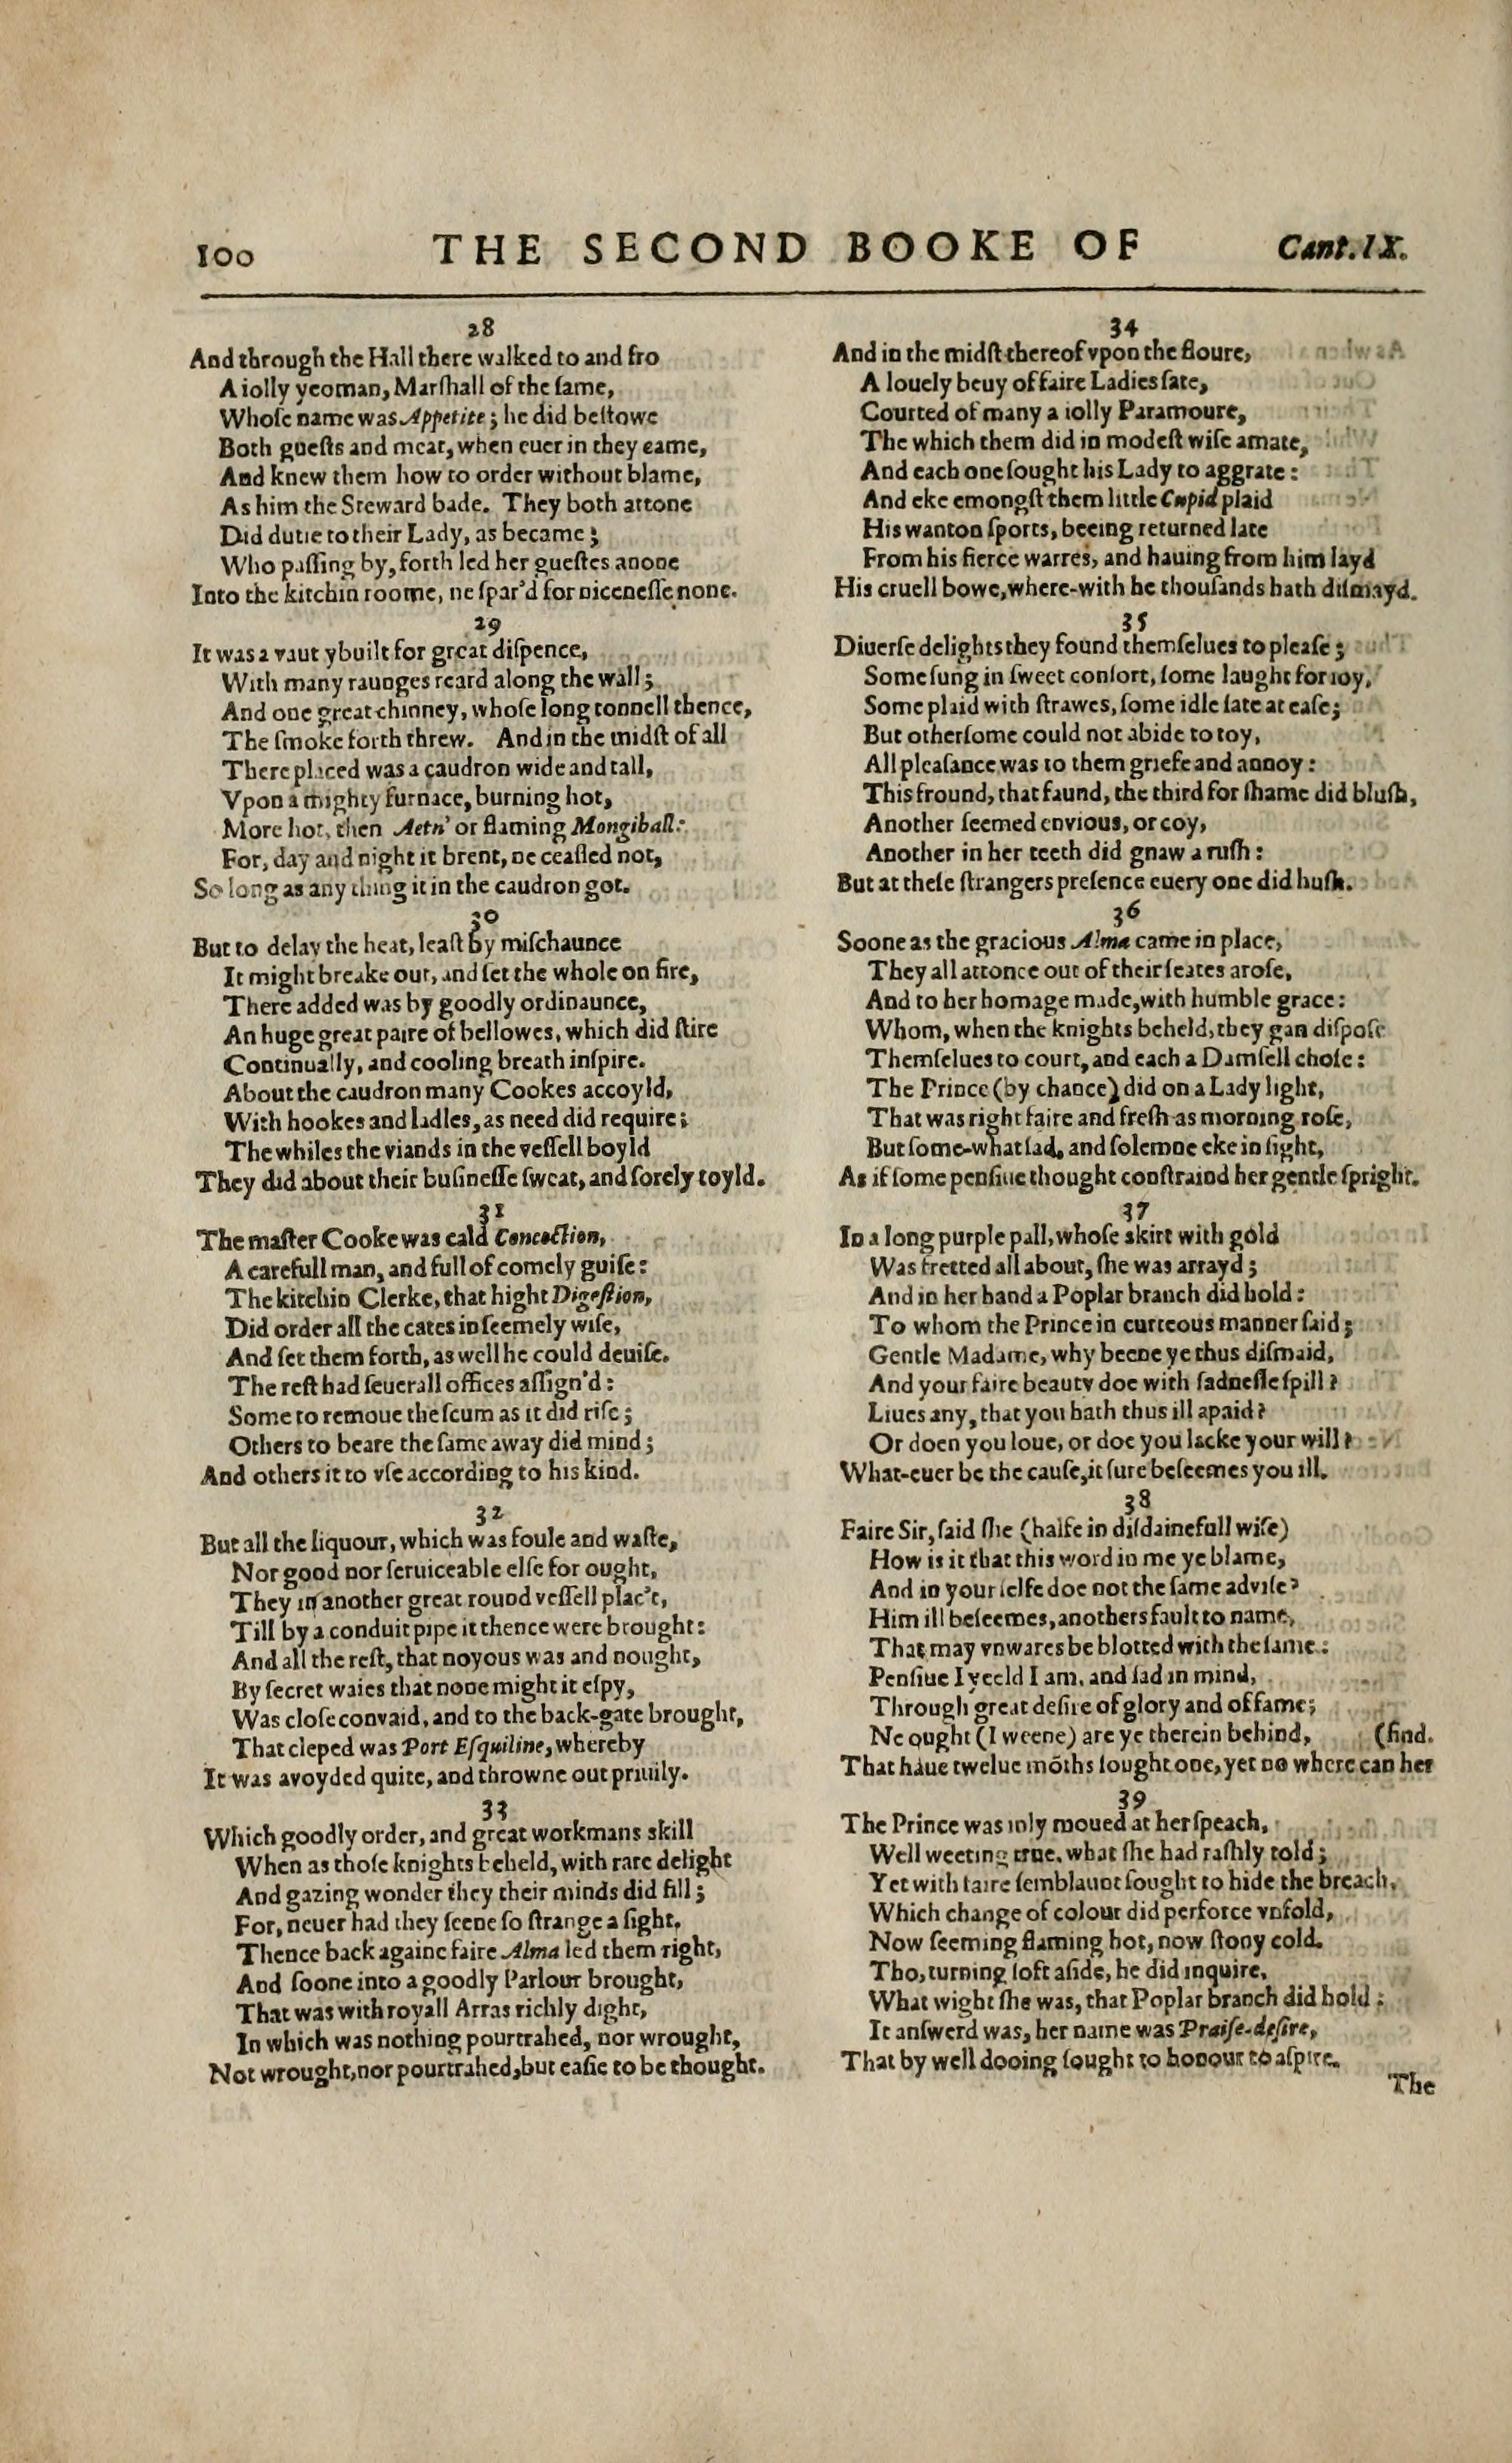 100 THE SECOND BOOKE OF Cant. IX.
28
And through the Hall there walked to and fro
A iolly yeoman, Marſhall of the ſame,
Whoſe name was Appetite; he did beſtowe
Both gueſts and meat, when euer in they came,
And knew them how to order without blame,
As him the Steward bade. They both attone
Did dutie to their Lady, as became;
Who paſſing by, forth led her gueſtes anone
Into the kitchin roome, ne ſpar'd for niceneſſe none.
29
It was a vaut ybuilt for great diſpence,
With many raunges reard along the wall;
And one great chinney, whoſe long tonnell thence,
The ſmoke forth threw. And in the midſt of all
There placed was a caudron wide and tall,
Vpon a mighty furnace, burning hot,
More hot, then Aetn' or flaming Mongiball:
For, day and night it brent, ne ceaſſed not,
So long as any thing it in the caudron got.
30
But to delay the heat, leaſt by miſchaunce
It might breake out, and ſet the whole on fire,
There added was by goodly ordinaunce,
An huge great paire of bellowes, which did ſtire
Continually, and cooling breath inſpire.
About the caudron many Cookes accoyld,
With hookes and ladles, as need did require;
The whiles the viands in the veſſell boyld
They did about their buſineſſe ſweat, and ſorely toyld.
31
The maſter Cooke was cald Concoction,
A carefull man, and full of comely guiſe:
The kitchin Clerke, that hight Digeſtion,
Did order all the cates in ſeemely wiſe,
And ſet them forth, as well he could deuiſe.
The reſt had ſeuerall offices aſſign'd:
Some to remoue the ſcum as it did riſe;
Others to beare the ſame away did mind;
And others it to vſe according to his kind.
32
But all the liquour, which was foule and waſte,
Nor good nor ſeruiceable elſe for ought,
They in another great round veſſell plac't,
Till by a conduit pipe it thence were brought:
And all the reſt, that noyous was and nought,
By ſecret waies that none might it eſpy,
Was cloſe convaid, and to the back-gate brought,
That cleped was Port Eſquiline, whereby
It was avoyded quite, and throwne out priuily.
33
Which goodly order, and great workmans skill
When as thoſe knights beheld, with rare delight
And gazing wonder they their minds did fill;
For, neuer had they ſeene ſo ſtrange a ſight.
Thence back againe faire Alma led them right,
And ſoone into a goodly Parlour brought,
That was with royall Arras richly dight,
In which was nothing pourtrahed, nor wrought,
Not wrought, nor pourtrahed, but eaſie to be thought.
34
And in the midſt thereof vpon the floure,
A louely beuy of faire Ladies ſate,
Courted of many a iolly Paramoure,
The which them did in modeſt wiſe amate,
And each one ſought his Lady to aggrate:
And eke emongſt them little Cupid plaid
His wanton ſports, beeing returned late
From his fierce warres, and hauing from him layd
His cruell bowe, where-with he thouſands hath diſmayd.
35
Diuerſe delights they found themſelues to pleaſe;
Some ſung in ſweet conſort, ſome laught for ioy,
Some plaid with ſtrawes, ſome idle ſate at eaſe;
But otherſome could not abide to toy,
All pleaſance was to them griefe and annoy:
This fround, that faund, the third for ſhame did bluſh,
Another ſeemed envious, or coy,
Another in her teeth did gnaw a ruſh:
But at theſe ſtrangers preſence euery one did huſh.
36
Soone as the gracious Alma came in place,
They all attonce out of their ſeates aroſe,
And to her homage made, with humble grace:
Whom, when the knights beheld, they gan diſpoſe
Themſelues to court, and each a Damſell choſe:
The Prince (by chance) did on a Lady light,
That was right faire and freſh as morning roſe,
But ſome-what ſad, and ſolemne eke in ſight,
As if ſome penſiue thought conſtraind her gentle ſpright.
37
In a long purple pall, whoſe skirt with gold
Was fretted all about, ſhe was arrayd;
And in her hand a Poplar branch did hold:
To whom the Prince in curteous manner ſaid;
Gentle Madame, why beene ye thus diſmaid,
And your faire beauty doe with ſadneſſe ſpill?
Liues any, that you hath thus ill apaid?
Or doen you loue, or doe you lacke your will?
What-euer be the cauſe, it ſure beſeemes you ill.
38
Faire Sir, ſaid ſhe (halfe in diſdainefull wiſe)
How is it that this word in me ye blame,
And in your ſelfe doe not the ſame adviſe?
Him ill beſeemes, anothers fault to name,
That may vnwares be blotted with the ſame:
Penſiue I yeeld I am, and ſad in mind,
Through great deſire of glory and of fame;
Ne ought (I weene) are ye therein behind, (find.
That haue twelue mõths ſought one, yet no where can her
39
The Prince was inly moued at her ſpeach,
Well weeting true, what ſhe had raſhly told;
Yet with faire ſemblaunt ſought to hide the breach,
Which change of colour did perforce vnfold,
Now ſeeming flaming hot, now ſtony cold.
Tho, turning ſoft aſide, he did inquire,
What wight ſhe was, that Poplar branch did hold:
It anſwerd was, her name was Praiſe-deſire,
That by well dooing ſought to honour to aſpire.
The